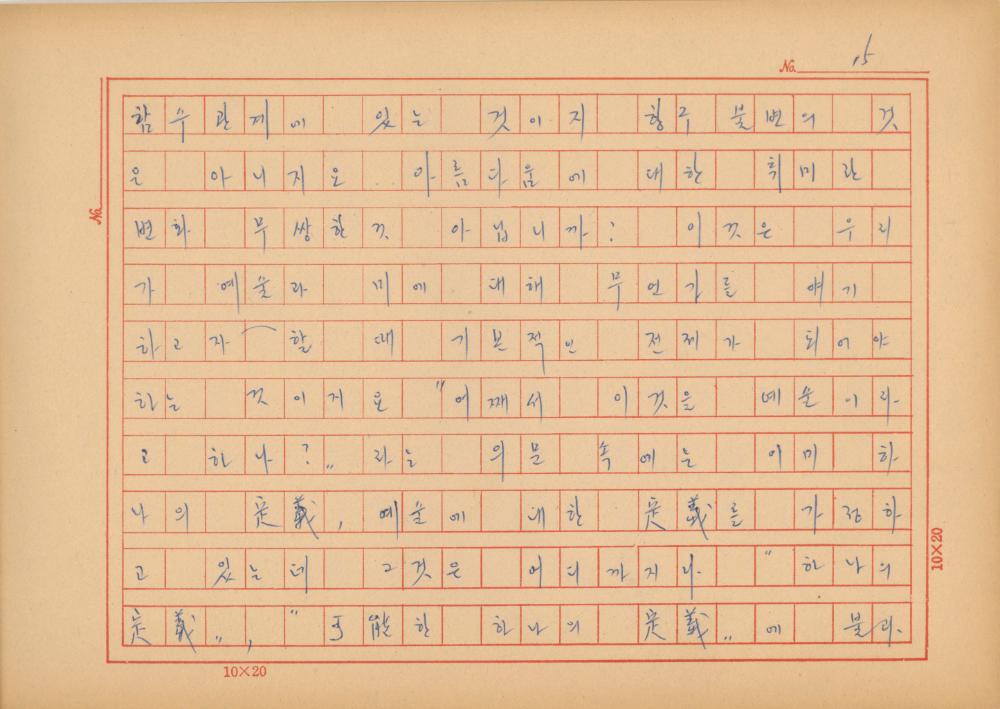 No. 15
함수관계에 있는 것이지 항구 불변의 것
은 아니지요 아름다움에 대한 취미란
변화 무쌍한것 아닙니까? 이것은 우리
가 예술과 미에 대해 무언가를 얘기
하고자 할 때 기본적인 전제가 되어야
하는 것이지요 "어째서 이것을 예술이라
고 하나?" 라는 의문 속에는 이미 하
나의 定義, 예술에 대한 定義를 가정하
고 있는데 그것은 어디까지나 "하나의
定義", "可能한 하나의 定義"에 불과
No.
10×20
10×20